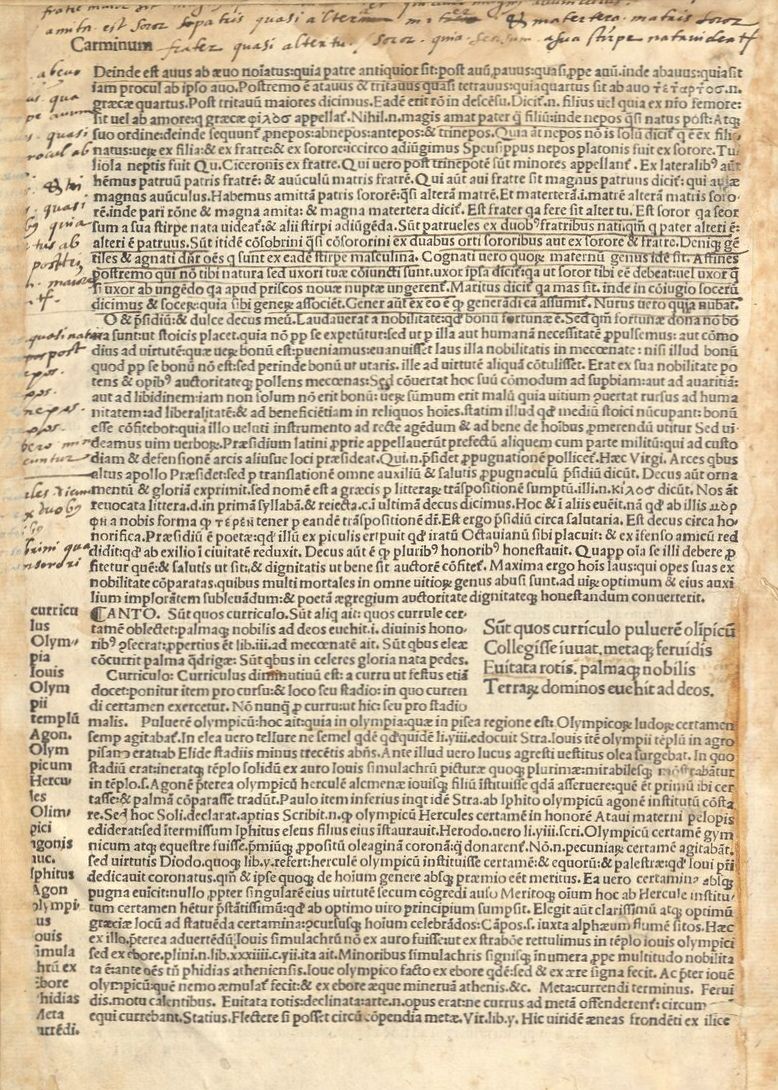 amita est soror patris quasi altera mater & matertera matris soror
frater quasi alter soror quia seorsum a sua stirpe nata videatur
Carminum
Deinde est auus ab æuo noĩatus:quia patre antiquior sit:post auũ,pauus:quasi,ppe auũ.inde abauus:quia sit
iam procul ab ipso auo.Postremo ē atauus & tritauus quasi tetrauus:quia quartus sit ab auo τέταρτοσ.n.
græcæ quartus.Post tritauũ maiores dicimus.Eadē erit rõ in descẽsu.Dicit.n.filius uel quia ex nr̃o femore:
sit uel ab amore:q græcæ φιλοσ appellat.Nihil.n.magis amat pater q̃ filiũ:inde nepos q̃si natus post:Atq;
suo ordine:deinde sequunt,pnepos:abnepos:antepos:& trinepos.Quia aũt nepos nõ is solũ dicit q ē ex filio
natus:uerꝫ ex filia:& ex fratre:& ex sorore:iccirco adiũgimus Speusippus nepos platonis fuit ex sorore.Tu/
liola neptis fuit Qu.Ciceronis ex fratre.Qui uero post trinepotē sũt minores appellant.Ex lateralibꝰ aũt
hẽmus patruũ patris fratrē:& auũculũ matris fratrē.Qui aũt aui fratre sit magnus patruus dicit:qui auiæ
magnus auũculus.Habemus amittã patris sororē:q̃si alterã matrē.Et materterã.i.matrē alterã matris soro/
rē.inde pari rõne & magna amita:& magna matertera dicit.Est frater qa fere sit alter tu.Est soror qa seor
sum a sua stirpe nata uideat:& alii stirpi adiũgēda.Sũt patrueles ex duobꝰ fratribus nati.qm̃ q pater alteri ē:
alteri ē patruus.Sũt itidē cõsobrini q̃si cõsororini ex duabus orti sororibus aut ex sorore & fratre.Deniq; gẽ
tiles & agnati dñr oẽs q sunt ex eadē stirpe masculina.Cognati uero quoꝝ maternũ genus idē sit.Affines
postremo qui nõ tibi natura sed uxori tuæ cõiuncti sunt.uxor ipsa dicit:qa ut soror tibi eē debeat:uel uxor q
si uxor ab ungēdo qa apud priscos nouæ nuptæ ungerent.Maritus dicit qa mas sit.inde in cõiugio socerũ
dicimus & socerꝝ:quia sibi generꝝ associēt.Gener aũt ex eo ē q generãdi cã assumit.Nurus uero quia nubat.
O & p̃sidiũ:& dulce decus meũ.Laudauerat a nobilitate:qd̃ bonũ fortunæ ē.Sed qm̃ fortunæ dona nõ bõ
ra sunt:ut stoicis placet.quia nõ pp se expetũtur:sed ut p illa aut humanã necessitatē ,ppulsemus:aut cõmo
dius ad uirtutē:quæ uerꝝ bonũ est:pueniamus:euanuisset laus illa nobilitatis in mecœnate:nisi illud bonũ
quod pp se bonũ nõ est:sed perinde bonũ ut utaris.ille ad uirtutē aliquã cõtulisset.Erat ex sua nobilitate po
tens & opibꝰ auctoritateq; pollens mecœnas:Sed cõuertat hoc suũ cõmodum ad supbiam:aut ad auaritiã:
aut ad libidinem:iam non solum nõ erit bonũ:uerꝝ sũmum erit malũ quia uitium ɔuertat rursus ad huma
nitatem:ad liberalitatē:& ad beneficiẽtiam in reliquos hoĩes.statim illud qd̃ mediũ stoici nũcupant:bonũ
esse cõfitebor:quia illo ueluti instrumento ad recte agēdum & ad bene de hoĩbus ,pmerendũ utitur Sed ui
deamus uim uerboꝝ.Præsidium latini ,pprie appellauerũt prefectũ aliquem cum parte militũ:qui ad custo
diam & defensionē arcis aliusue loci præsideat.Qui.n.p̃sidet ,ppugnationē pollicet.Hæc Virgi.Arces qbus
altus apollo Præsidet:sed p translationē omne auxiliũ & salutis ,ppugnaculũ p̃sidiũ dicũt.Decus aũt orna
mentũ & gloriã exprimit.sed nomē est a græcis p litteraꝝ trãspositionē sumptũ.illi.n.κιλοσ dicũt.Nos aũt
reuocata littera.d.in primã syllabã.& reiecta.c.i ultimã decus dicimus.Hoc & i aliis euēit.nã qd̃ ab illis μορ
φη a nobis forma q τερεν tener p eandē trãspositionē dr̃.Est ergo p̃sidiũ circa salutaria.Est decus circa ho/
norifica.Præsidiũ ē poetæ:qd̃ illũ ex piculis eripuit qd̃ iratũ Octauianũ sibi placuit:& ex ĩfenso amicũ red
didit:qd̃ ab exilio i ciuitatē reduxit.Decus aũt ē q̃ pluribꝰ honoribꝰ honestauit.Quapp oĩa se illi debere ,p
fitetur quē:& salutis ut sit:& dignitatis ut bene sit auctorē cõfitet.Maxima ergo hoĩs laus:qui opes suas ex
nobilitate cõparatas.quibus multi mortales in omne uitioꝝ genus abusi sunt.ad uirꝝ optimum & eius auxi
lium implorãtem subleuãdum:& poetã ægregium auctoritate dignitateq; honestandum conuerterit.
CANTO. Sũt quos curriculo.Sũt aliq ait:quos currule cer-
tamē oblectet:palmaq; nobilis ad deos euehit.i.diuinis hono-
ribꝰ ɔsecrat:,ppertius ēt lib.iii.ad mecœnatē ait.Sũt qbus eleæ
cõcurrit palma q̃drigæ:Sũt qbus in celeres gloria nata pedes.
Curriculo: Curriculus diminutiuũ est:a curru ut festus etiã
docet:ponitur item pro cursu:& loco seu stadio:in quo curren
di certamen exercetur.Nõ nunq̃ p curru:ut hic:seu pro stadio
Sũt quos curriculo puluerē olĩpicũ
Collegisse iuuat.metaq; feruidis
Euitata rotis. palmaq; nobilis
Terraꝝ dominos euehit ad deos.
malis. Puluerē olympicũ:hoc ait:quia in olympia:quæ in pisea regione est:Olympicoꝝ ludoꝝ certamen
semp agitabat.In elea uero tellure ne semel qdē qd̃quidē li.viii.edocuit Stra.Iouis itē olympii tẽplũ in agro
pisano erat:ab Elide stadiis minus trecẽtis abñs.Ante illud uero lucus agresti uestitus olea surgebat.In quo
stadiũ erat:ineratq; tẽplo solidũ ex auro Iouis simulachrũ picturæ quoq; plurimæ:mirabilesq; mõstrabãtur
in tẽplo.s.Agonē p̃terea olympicũ herculē alcmenæ iouisq; filiũ ĩstituisse qdã asseruere:quē ēt primũ ibi cer
tasse:& palmã cõparasse tradũt.Paulo item inferius inqt idē Stra.ab Iphito olympicũ agonē institutũ cõsta
re.Sed hoc Soli.declarat.aptius Scribit.n.q olympicũ Hercules certamē in honorē Ataui materni pelopis
ediderat:sed ĩtermissum Iphitus eleus filius eius ĩstaurauit.Herodo.uero li.viii.scri.Olympicũ certamē gym
nicum atq; equestre fuisse.p̃miũq; ,ppositũ oleaginã coronã:q donarent.Nõ.n.pecuniaꝝ certamē agitabãt.
sed uirtutis Diodo.quoq; lib.v.refert:herculē olympicũ instituisse certamē:& equorũ:& palestræ:qd̃ Ioui pr̃i
dedicauit coronatus.qm̃ & ipse quoq; de hoĩum genere absq; præmio eēt meritus.Ea uero certamina absq;
pugna euicit:nullo ,ppter singularē eius uirtutē secum cõgredi auso Meritoq; oĩum hoc ab Hercule institu/
tum certamen hẽtur p̃stãtissimũ:qd̃ ab optimo uiro principium sumpsit.Elegit aũt clarissimũ atq; optimũ
græciæ locũ ad statuēda certamina:ɔcursusq; hoĩum celebrãdos:Cãpos.s.iuxta alphæum flumē sitos.Hæc
ex illo.p̃terea aduertẽdũ;Iouis simulachrũ nõ ex auro fuisse:ut ex strabõe rettulimus in tẽplo Iouis olympici
sed ex ebore.plini.n.lib.xxxiiii.c.vii.ita ait.Minoribus simulachris signisq; ĩnumera ,ppe multitudo nobilita
ta ē:ante oẽs tñ phidias atheniensis.Ioue olympico facto ex ebore qdē:sed & ex ære signa fecit.Ac p̃ter iouē
olympicũ:quē nemo æmulat fecit:& ex ebore æque mineruã athenis.&c. Meta:currendi terminus. Ferui
dis.motu calentibus. Euitata rotis:declinata:arte.n.opus erat:ne currus ad metã offenderent:circum
equi currebant.Statius.Flectere si posset circũ cõpendia metæ.Vir.lib.v. Hic uiridē æneas frondẽti ex ilice
curricu
lus
Olym-
pia
Iouis
Olym
pii
templũ
Agon.
Olym
picum
Hercu/
les
Olim/
pici
agonis
auc.
Iphitus
Agon
olympi-
cus
Iouis
simula
chrũ ex
Ebore
Phidias
Meta
currēdi.